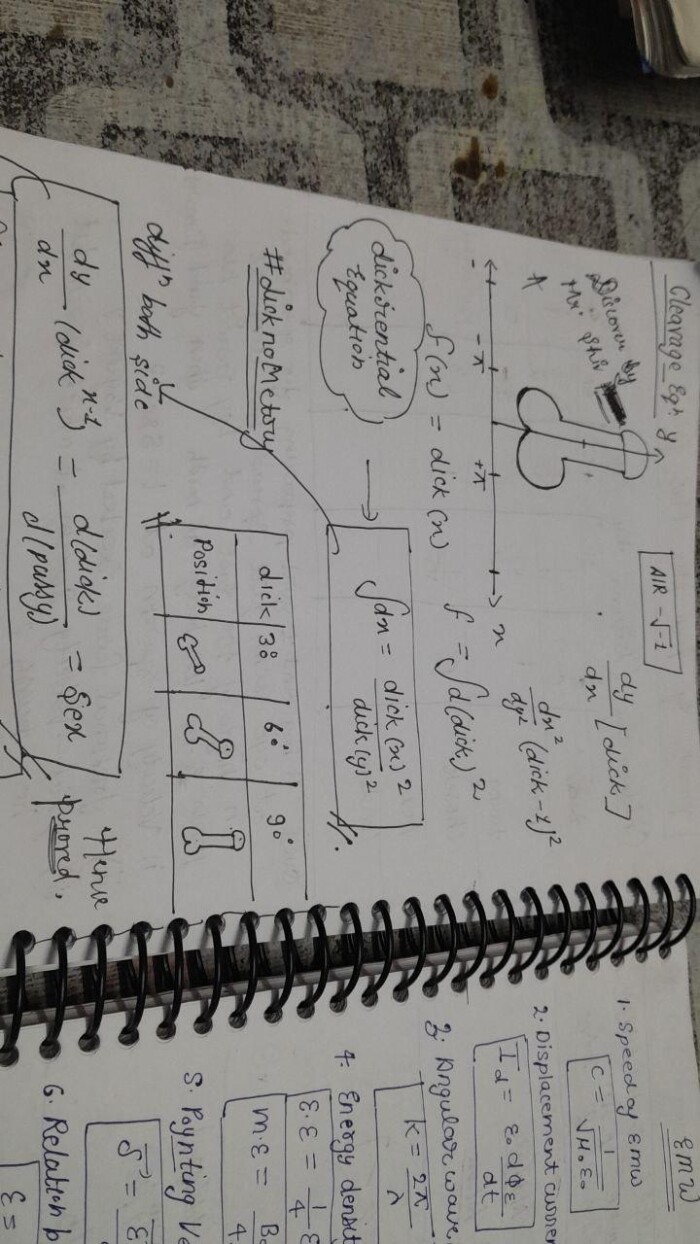 Cleavage Eqn.
y
Discover by
AIR - √-1
dy/dx [dick]
dx²/dy² (dick-1)²
-π
+π
x
f(x) = dick(x)
f = ∫d(dick)²
dickfrential
Equation
→
∫dx = dick(x)²/dick(y)²
#dicknoMetory
dick
30°
60°
90°
Position
diffⁿ both side
dy/dx (dick^x-1) = d(dick)/d(pussy) = Sex
Hence
proved.
EMW
1. Speed of EMW
C = 1/√μ₀ε₀
2. Displacement curren
I_d = ε₀ dϕ_E/dt
3. Angular wave
k = 2π/λ
4. Energy densit
E.E = 1/4 ε
M.E = B₀/4
5. Poynting Ve
6. Relation b